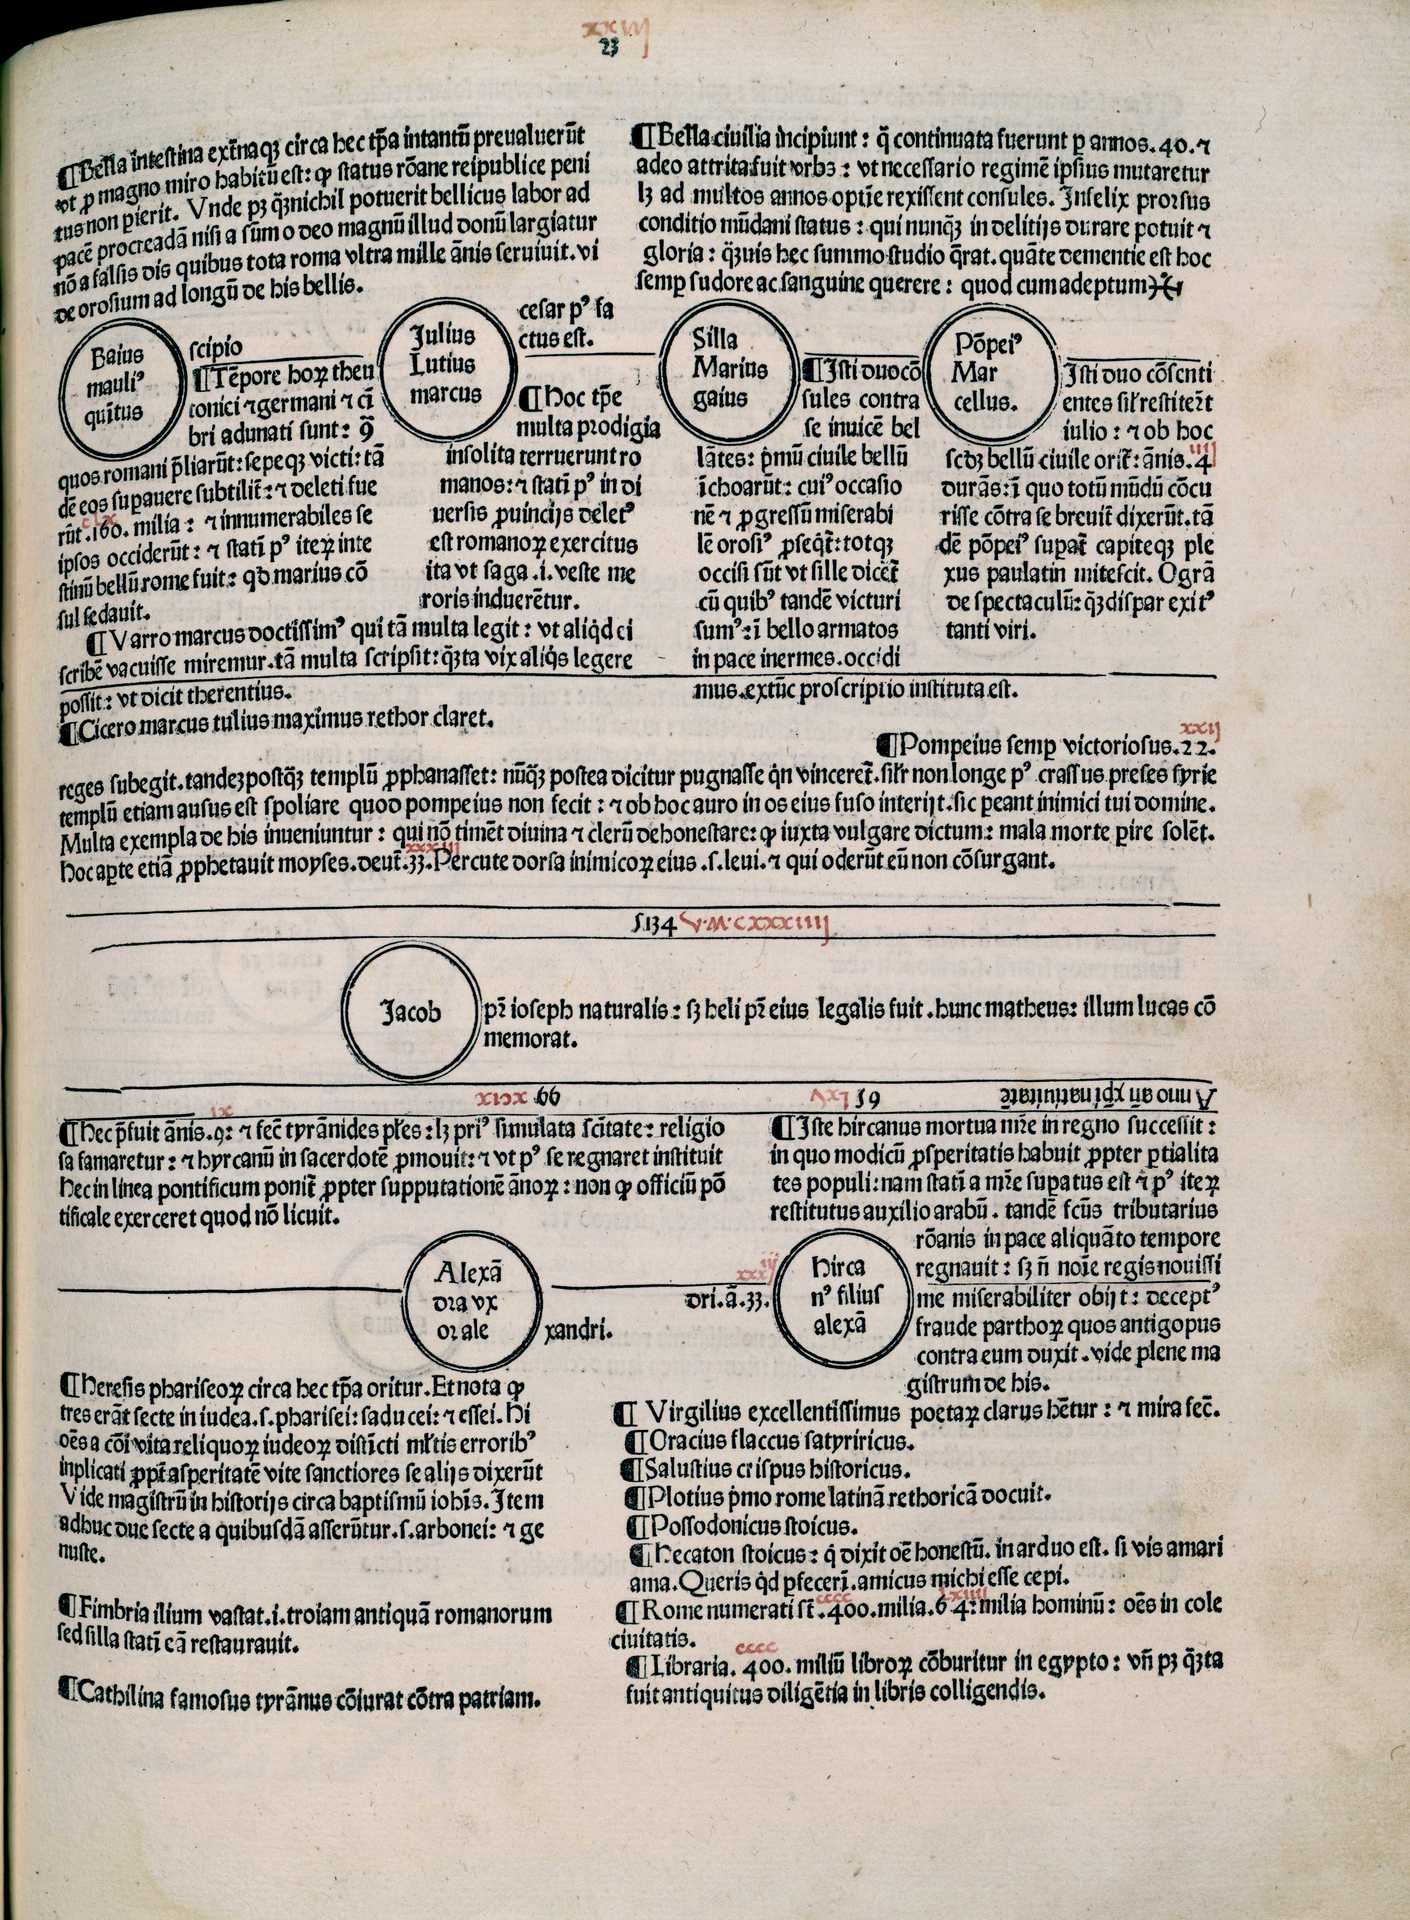 xxiij
23
¶Bella intestina ext̄naqꝫ circa hec tp̄a intantū preualuerūt
vt ꝓ magno miro habitū est: ꝙ status rōane reipublice peni
tus non p̄ierit. Vnde pꝫ q̄ꝫnichil potuerit bellicus labor ad
pacē procreadā nisi a sūmo deo magnū illud donū largiatur
nō a falsis dis quibus tota roma vltra mille ānis seruiuit. vi
de orosium ad longū de his bellis.
¶Bella ciuilia incipiunt: q̄ continuata fuerunt p annos. 40. ⁊
adeo attrita fuit vrbs: vt necessario regimē ipsius mutaretur
lꝫ ad multos annos optīe rexissent consules. Infelix prorsus
conditio mūdani status: qui nunq̄ꝫ in delitijs durare potuit ⁊
gloria: q̄ꝫuis hec summo studio q̄rat. quāte dementie est hoc
semꝑ sudore ac sanguine querere: quod cum adeptum
Gaius
mauliꝰ
quītus
scipio
¶Tēpore hoꝝ theu
tonici ⁊ germani ⁊ cī
bri adunati sunt: ꝯ̄
quos romani p̄liarūt: sepeqꝫ victi: tā
dē eos suꝑauere subtilit̄: ⁊ deleti fue
clx
rūt .160. milia: ⁊ innumerabiles se
ipsos occiderūt: ⁊ statī pꝰ iteꝝ inte
stinū bellū rome fuit: qd̄ marius cō
sul sedauit.
Julius
Lutius
marcus
cesar pꝰ fa
ctus est.
¶Hoc tp̄e
multa prodigia
insolita terruerunt ro
manos: ⁊ statī pꝰ in di
uersis ꝓuincijs deletꝰ
est romanoꝝ exercitus
ita vt saga .i. veste me
roris induerētur.
Silla
Marius
gaius
¶Isti duo cō
sules contra
se inuicē bel
lātes: p̄mū ciuile bellū
īchoarūt: cuiꝰ occasio
nē ⁊ ꝓgressū miserabi
lē orosiꝰ ꝓseqt̄: totqꝫ
occisi sūt vt sille dicet̄
cū quibꝰ tandē victuri
sumꝰ: ī bello armatos
in pace inermes. occidi
mus. extūc proscriptio instituta est.
Pōpeiꝰ
Mar
cellus.
Isti duo cōsenti
entes sil̄r restiter̄t
iulio: ⁊ ob hoc
iiij
scdꝫ bellū ciuile orit̄: ānis. 4
durās: ī quo totū mūdū cōcu
risse cōtra se breuit̄ dixerūt. tā
dē pōpeiꝰ suꝑat̄ capiteqꝫ ple
xus paulatin mitescit. O grā
de spectaculū: q̄ꝫ dispar exitꝰ
tanti viri.
¶Varro marcus doctissimꝰ qui tā multa legit: vt aliqd̄ ei
scribē vacuisse miremur. tā multa scripsit: q̄ꝫta vix aliq̄s legere
possit: vt dicit therentius.
¶Cicero marcus tulius maximus rethor claret.
xxij
¶Pompeius semꝑ victoriosus. 22.
reges subegit. tandeꝫ postq̄ꝫ templū ꝓphanasset: nūq̄ꝫ postea dicitur pugnasse qn̄ vinceret̄. sil̄r non longe pꝰ crassus preses syrie
templū etiam ausus est spoliare quod pompeius non fecit: ⁊ ob hoc auro in os eius fuso interijt. sic ꝑeant inimici tui domine.
Multa exempla de his inueniuntur: qui nō timēt diuina ⁊ clerū dehonestare: ꝙ iuxta vulgare dictum: mala morte ꝑire solēt.
xxxiij
hoc aꝑte etiā ꝓphetauit moyses. deut̄. 33. Percute dorsa inimicoꝝ eius .s. leui. ⁊ qui oderūt eū non cōsurgant.
5134 V.M.CXXXIIIJ
Jacob
pr̄ ioseph naturalis: sꝫ heli pr̄ eius legalis fuit. hunc matheus: illum lucas cō
memorat.
66
59
Anno an̄ xp̄i natiuitatē
ix
¶Hec p̄fuit ānis. 9: ⁊ fec̄ tyrānides pl̄es: lꝫ priꝰ simulata sc̄itate: religio
sa famaretur: ⁊ hyrcanū in sacerdotē ꝓmouit: ⁊ vt pꝰ se regnaret instituit
Hec in linea pontificum ponit̄ ꝓpter supputationē ānoꝝ: non ꝙ officiū pō
tificale exerceret quod nō licuit.
¶Iste hircanus mortua mr̄e in regno successit:
in quo modicū ꝓsperitatis habuit ꝓpter ꝑtialita
tes populi: nam statī a mr̄e suꝑatus est ⁊ pꝰ iteꝝ
restitutus auxilio arabū. tandē fcūs tributarius
rōanis in pace aliquāto tempore
regnauit: sꝫ n̄ noīe regis nouissi
me miserabiliter obijt: deceptꝰ
fraude parthoꝝ quos antigopus
contra eum duxit. vide plene ma
gistrum de his.
Alexā
dra vx
or ale
xandri.
xxxiij
dri. ā. 33.
Hirca
nꝰ filius
alexā
¶Heresis phariseoꝝ circa hec tp̄a oritur. Et nota ꝙ
tres erāt secte in iudea .s. pharisei: saducei: ⁊ essei. Hi
oēs a cōi vita reliquoꝝ iudeoꝝ distīcti ml̄tis erroribꝰ
inplicati ꝓpt̄ asperitatē vite sanctiores se alijs dixerūt
Vide magistrū in historijs circa baptismū iohis̄. Item
adhuc due secte a quibusdā asserūtur .s. arbonei: ⁊ ge
nuste.
¶Fimbria ilium vastat .i. troiam antiquā romanorum
sed silla statī eā restaurauit.
¶Cathilina famosus tyrānus cōiurat cōtra patriam.
¶Virgilius excellentissimus poetaꝝ clarus hētur: ⁊ mira fec̄.
¶Oracius flaccus satyriricus.
¶Salustius crispus historicus.
¶Plotius p̄mo rome latinā rethoricā docuit.
¶Possodonicus stoicus.
¶Hecaton stoicus: q̄ dixit oē honestū. in arduo est. si vis amari
ama. Queris qd̄ ꝓfecerī. amicus michi esse cepi.
cccc lxiiij
¶Rome numerati sūt .400. milia. 64: milia hominū: oēs in cole
ciuitatis.
cccc
¶Libraria. 400. miliū libroꝝ cōburitur in egypto: vn̄ pꝫ q̄ꝫta
fuit antiquitus diligētia in libris colligendis.